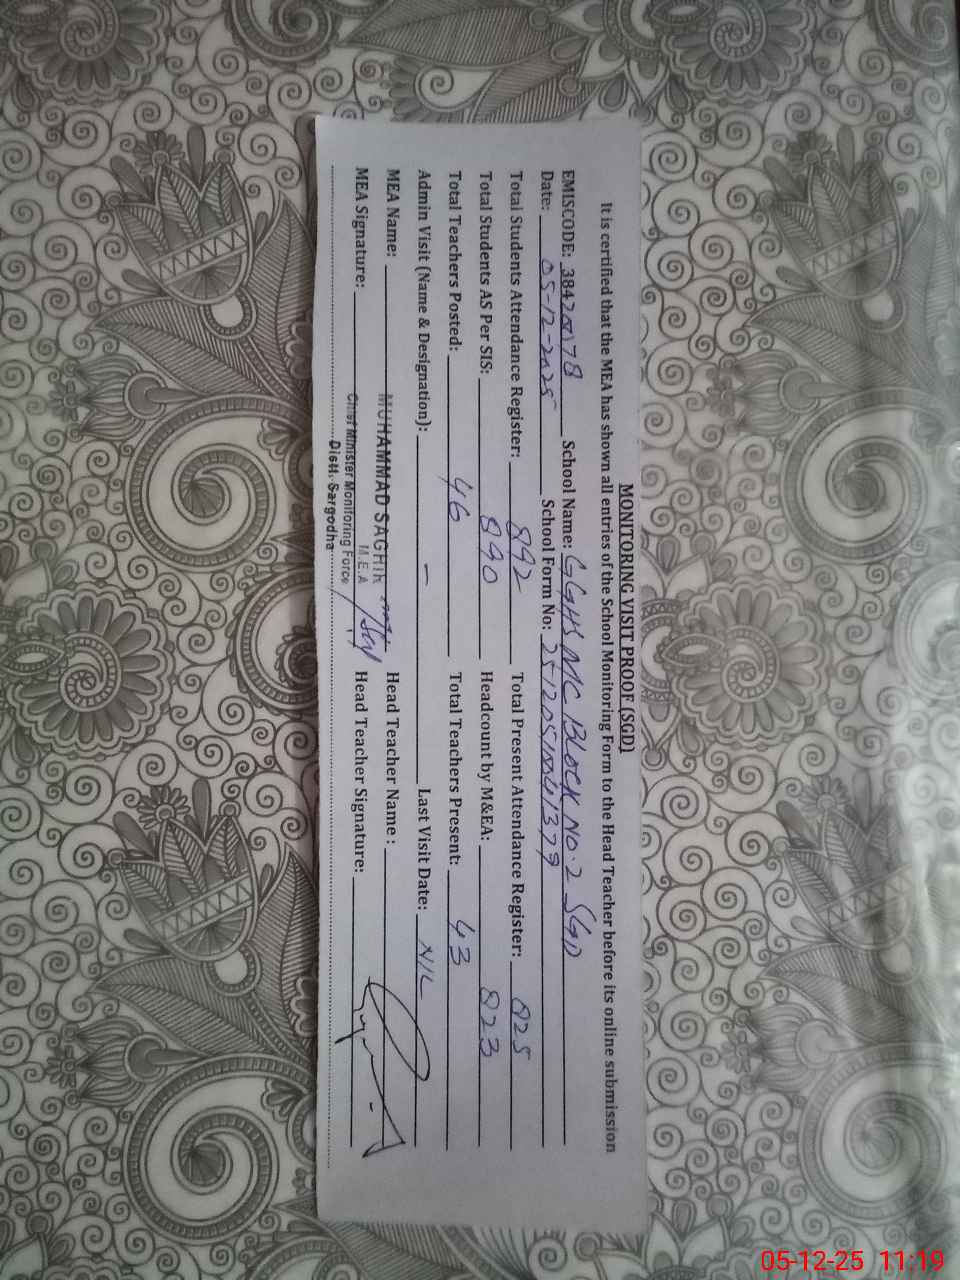 MONITORING VISIT PROOF (SGD)
It is certified that the MEA has shown all entries of the School Monitoring Form to the Head Teacher before its online submission
EMISCODE: 38420178 School Name: GGHS MC Block No. 2 SGD
Date: 05-12-2025 School Form No:
Total Students Attendance Register: 892 Total Present Attendance Register: 825
Total Students AS Per SIS: 890 Headcount by M&EA: 823
Total Teachers Posted: 46 Total Teachers Present: 43
Admin Visit (Name & Designation): – Last Visit Date: NIL
MEA Name: MUHAMMAD SAGHIR Head Teacher Name :
M.E.A
MEA Signature: Chief Minister Monitoring Force Head Teacher Signature:
Distt. Sargodha
05-12-25 11:19